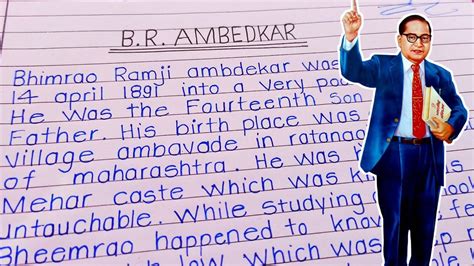 B.R. AMBEDKAR
Bhimrao Ramji ambdekar was
14 april 1891 into a very poo
He was the Fourteenth Son
Father. His birth place was
village ambavade in ratana
of maharashtra. He was th
Mehar caste which was k
Untouchable. While studying hool
Bheemrao happened to know fe
low. which was ep